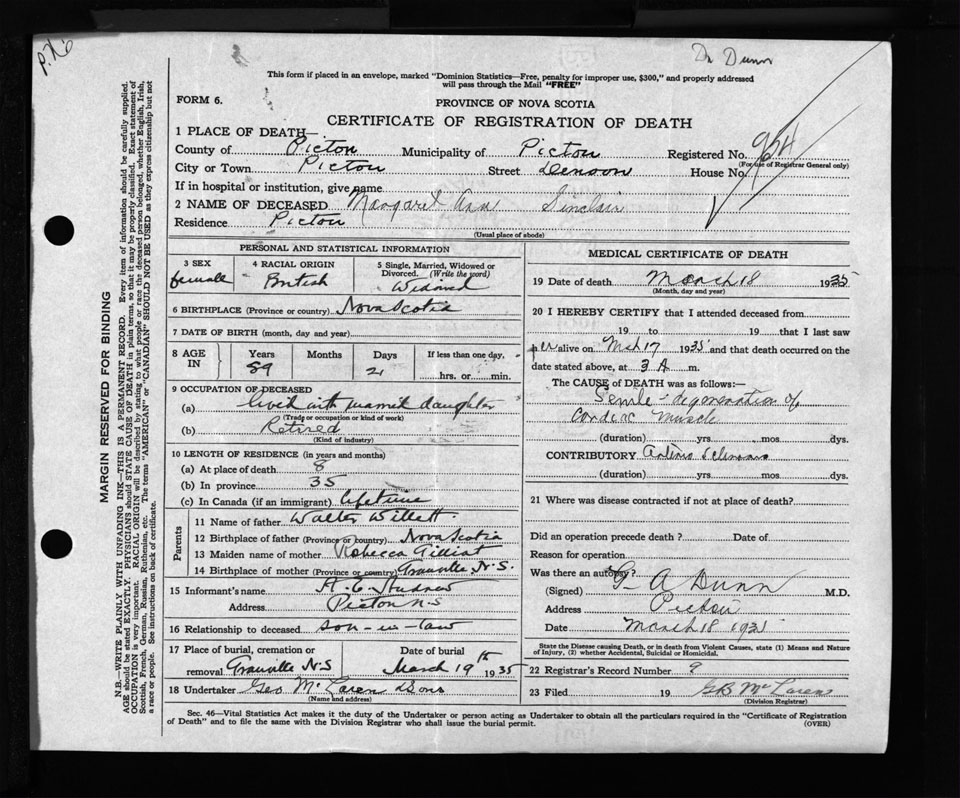 Dr Dunn
This form if placed in an envelope, marked "Dominion Statistics—Free, penalty for improper use, $300," and properly addressed
will pass through the Mail "FREE"
FORM 6.
PROVINCE OF NOVA SCOTIA
CERTIFICATE OF REGISTRATION OF DEATH
1 PLACE OF DEATH—
County of Pictou Municipality of Pictou Registered No.
(For use of Registrar General only)
City or Town Pictou Street Denoon House No.
If in hospital or institution, give name
2 NAME OF DECEASED Margaret Ann Sinclair
Residence Pictou
(Usual place of abode)
PERSONAL AND STATISTICAL INFORMATION
3 SEX 4 RACIAL ORIGIN 5 Single, Married, Widowed or
Divorced. (Write the word)
female British Widowed
6 BIRTHPLACE (Province or country) Nova Scotia
7 DATE OF BIRTH (month, day and year)
8 AGE IN Years Months Days If less than one day,
89 21 hrs. or min.
9 OCCUPATION OF DECEASED
(a) lived with married daughter
(Trade or occupation or kind of work)
(b) Retired
(Kind of industry)
10 LENGTH OF RESIDENCE (in years and months)
(a) At place of death 8
(b) In province 35
(c) In Canada (if an immigrant) lifetime
Parents
11 Name of father Walter Willett
12 Birthplace of father (Province or country) Nova Scotia
13 Maiden name of mother Rebecca Gilliat
14 Birthplace of mother (Province or country) Granville, N.S.
15 Informant's name
Address Pictou N S
16 Relationship to deceased son-in-law
17 Place of burial, cremation or Date of burial
removal Granville N.S March 19th 1935
18 Undertaker Geo McLaren & Sons
(Name and address)
MEDICAL CERTIFICATE OF DEATH
19 Date of death March 18 1935
(Month, day and year)
20 I HEREBY CERTIFY that I attended deceased from
19 to 19 that I last saw
her alive on Mch 17 1935 and that death occurred on the
date stated above, at 3 A m.
The CAUSE of DEATH was as follows:—
Senile degeneration of
Cardiac Muscle
(duration) yrs. mos. dys.
CONTRIBUTORY
(duration) yrs. mos. dys.
21 Where was disease contracted if not at place of death?
Did an operation precede death? Date of
Reason for operation
Was there an autopsy?
(Signed) G A Dunn M.D.
Address Pictou
Date March 18 1935
State the Disease causing Death, or in death from Violent Causes, state (1) Means and Nature
of Injury, (2) whether Accidental, Suicidal or Homicidal.
22 Registrar's Record Number 9
23 Filed 19 GB McLaren
(Division Registrar)
Sec. 46—Vital Statistics Act makes it the duty of the Undertaker or person acting as Undertaker to obtain all the particulars required in the "Certificate of Registration
of Death" and to file the same with the Division Registrar who shall issue the burial permit. (OVER)
MARGIN RESERVED FOR BINDING
N.B.—WRITE PLAINLY WITH UNFADING INK—THIS IS A PERMANENT RECORD. Every item of information should be carefully supplied.
AGE should be stated EXACTLY. PHYSICIANS should STATE CAUSE OF DEATH in plain terms, so that it may be properly classified. Exact statement of
OCCUPATION is very important. RACIAL ORIGIN will be described by stating to what people or race the deceased person belonged, whether English, Irish,
Scottish, French, German, Russian, Ruthenian, etc. The terms "AMERICAN" or "CANADIAN" SHOULD NOT BE USED as they express citizenship but not
a race or people. See instructions on back of certificate.